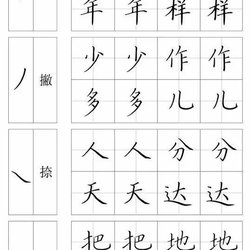 年 年 样 样
撇
少 少 作 作
多 多 儿 儿
捺
人 人 分 分
天 天 达 达
把 把 地 地